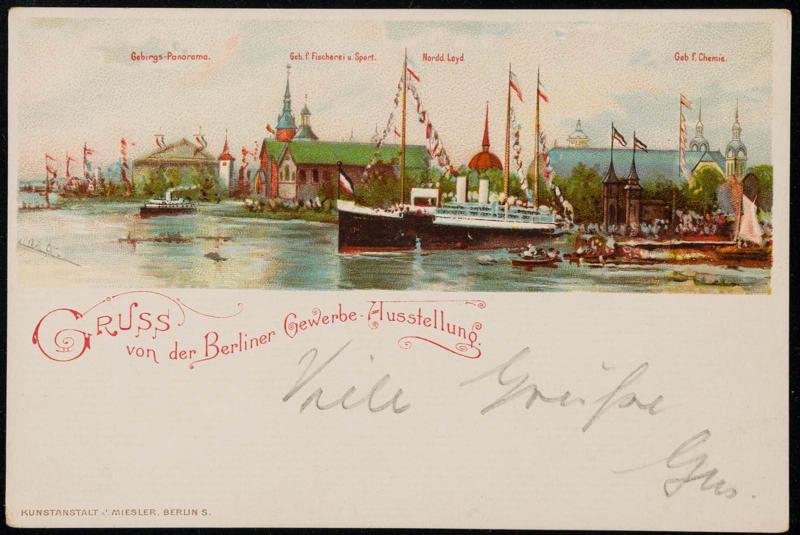 Gebirgs-Panorama.
Geb. f. Fischerei u. Sport.
Nordd. Loyd
Geb f. Chemie.
Gruss
von der Berliner Gewerbe-Ausstellung.
Viele Grüße
Gus.
KUNSTANSTALT J. MIESLER, BERLIN S.